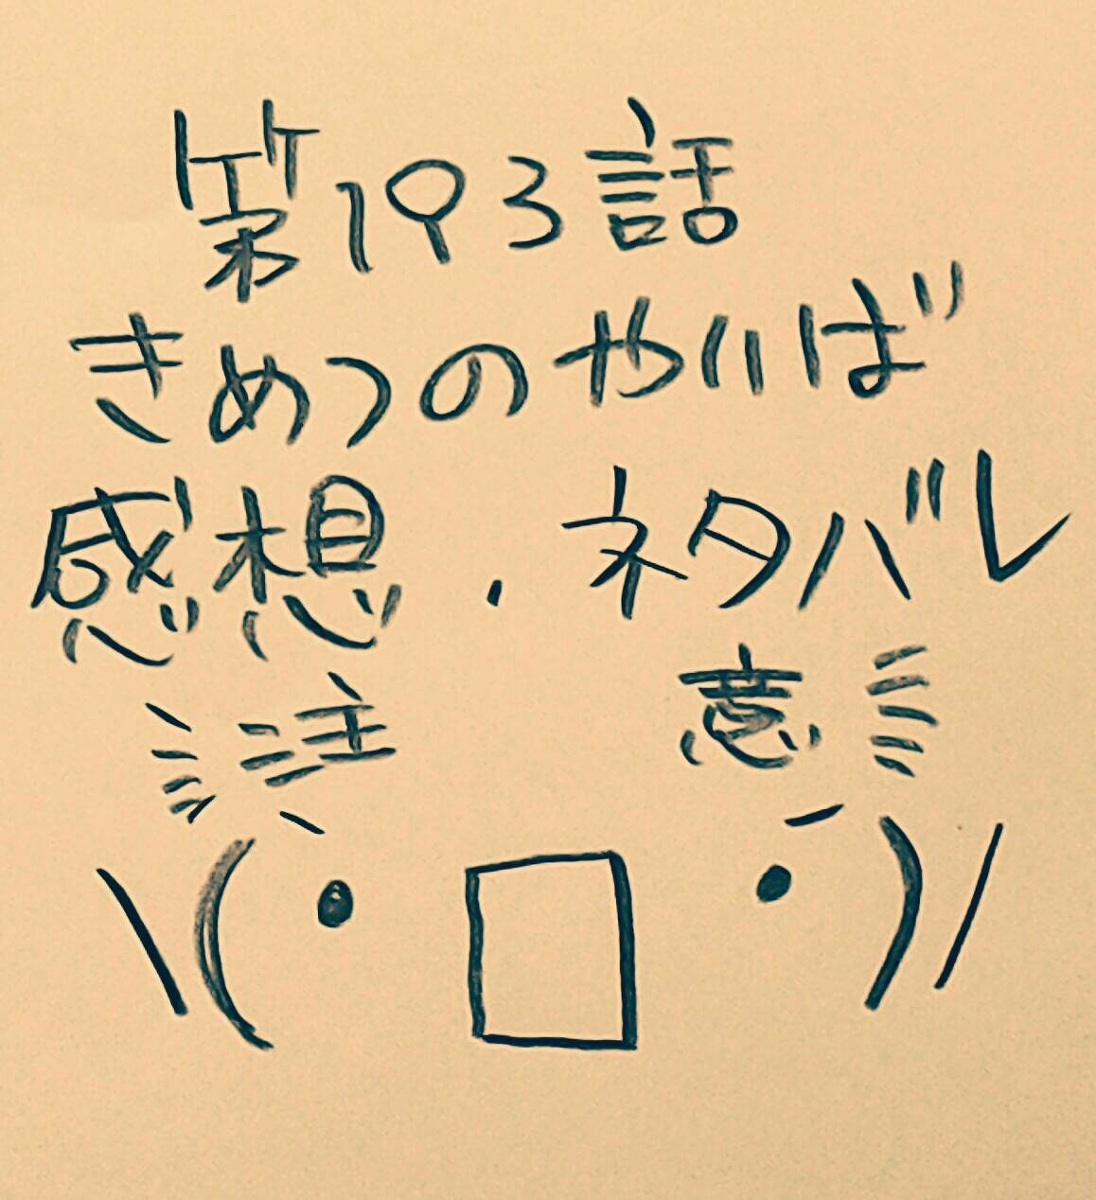 第193話
きめつのやいば
感想.ネタバレ
注 意
\(• □ •)/